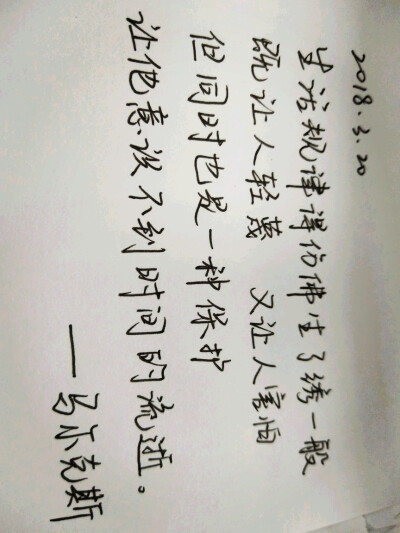 2018.3.20
生活规律得仿佛生了锈一般
既让人轻蔑 又让人害怕
但同时也是一种保护
让他意识不到时间的流逝。
——马尔克斯